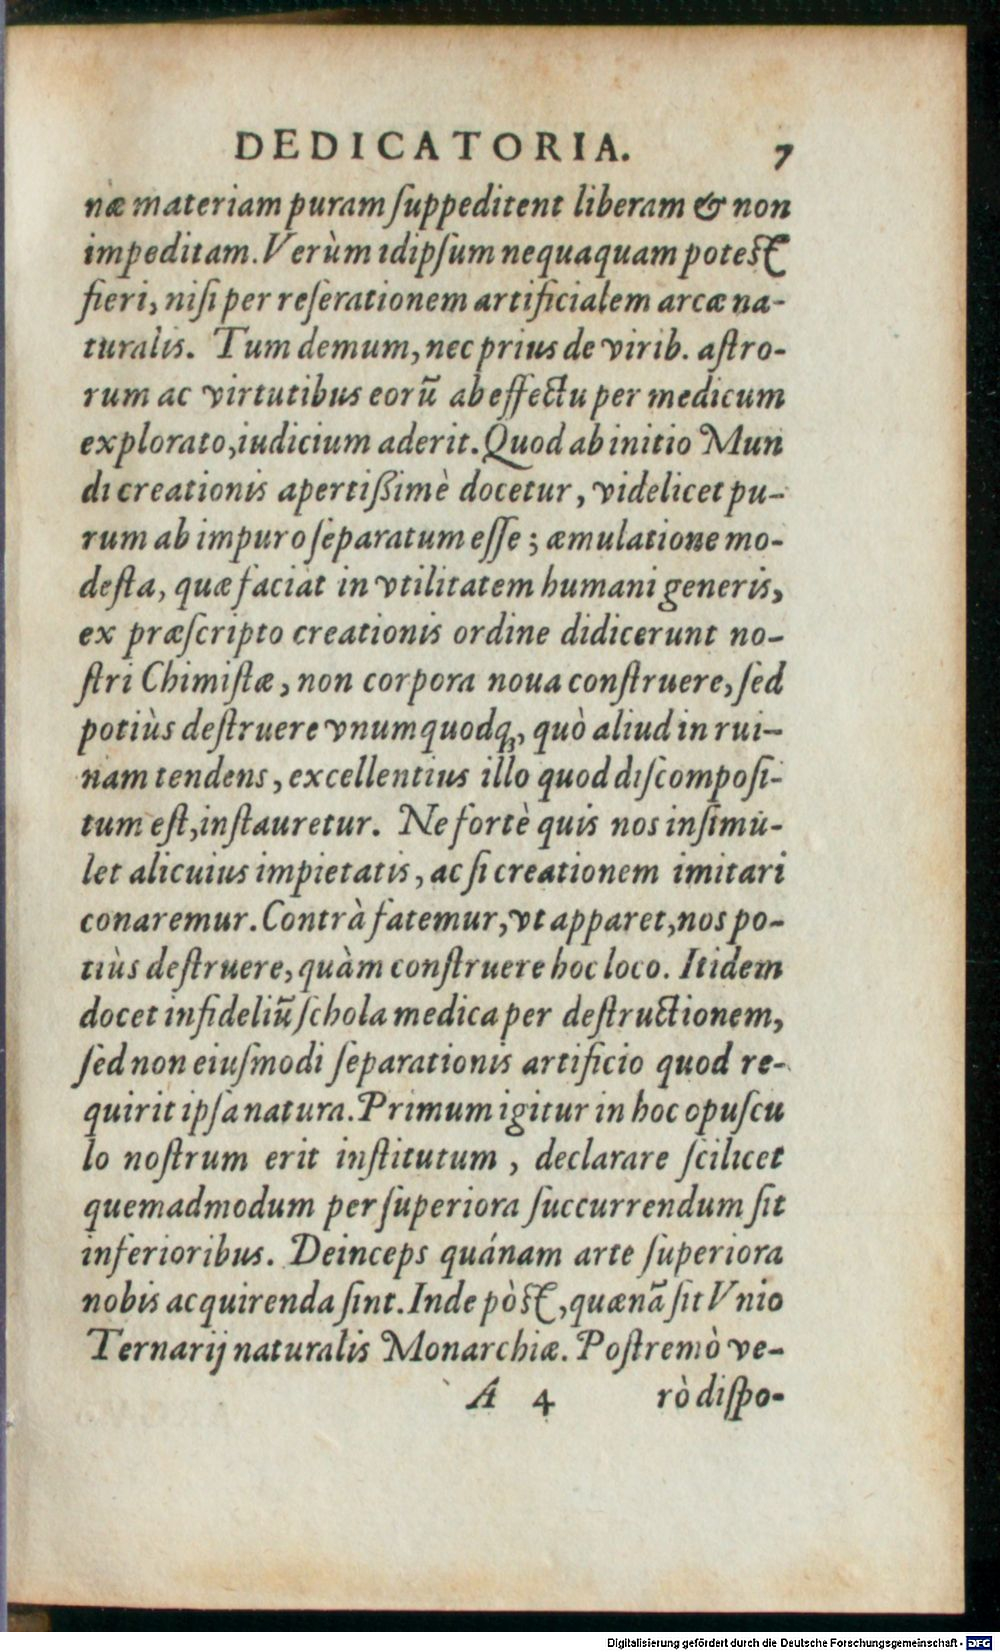 DEDICATORIA. 7
næ materiam puram ſuppeditent liberam & non
impeditam. Verùm idipſum nequaquam poteſt
fieri, niſi per reſerationem artificialem arcæ na-
turalis. Tum demum, nec prius de virib. aſtro-
rum ac virtutibus eorũ ab effectu per medicum
explorato, iudicium aderit. Quod ab initio Mun
di creationis apertißimè docetur, videlicet pu-
rum ab impuro ſeparatum eſſe; æmulatione mo-
deſta, quæ faciat in vtilitatem humani generis,
ex præſcripto creationis ordine didicerunt no-
ſtri Chimiſtæ, non corpora noua conſtruere, ſed
potiùs deſtruere vnumquodq;, quò aliud in rui-
nam tendens, excellentius illo quod diſcompoſi-
tum eſt, inſtauretur. Ne fortè quis nos inſimu-
let alicuius impietatis, ac ſi creationem imitari
conaremur. Contrà fatemur, vt apparet, nos po-
tiùs deſtruere, quàm conſtruere hoc loco. Itidem
docet infideliũ ſchola medica per deſtructionem,
ſed non eiuſmodi ſeparationis artificio quod re-
quirit ipſa natura. Primum igitur in hoc opuſcu
lo noſtrum erit inſtitutum, declarare ſcilicet
quemadmodum per ſuperiora ſuccurrendum ſit
inferioribus. Deinceps quánam arte ſuperiora
nobis acquirenda ſint. Inde pòſt, quænã ſit Vnio
Ternarij naturalis Monarchiæ. Poſtremò ve-
A 4 rò diſpo-
Digitalisierung gefördert durch die Deutsche Forschungsgemeinschaft - DFG